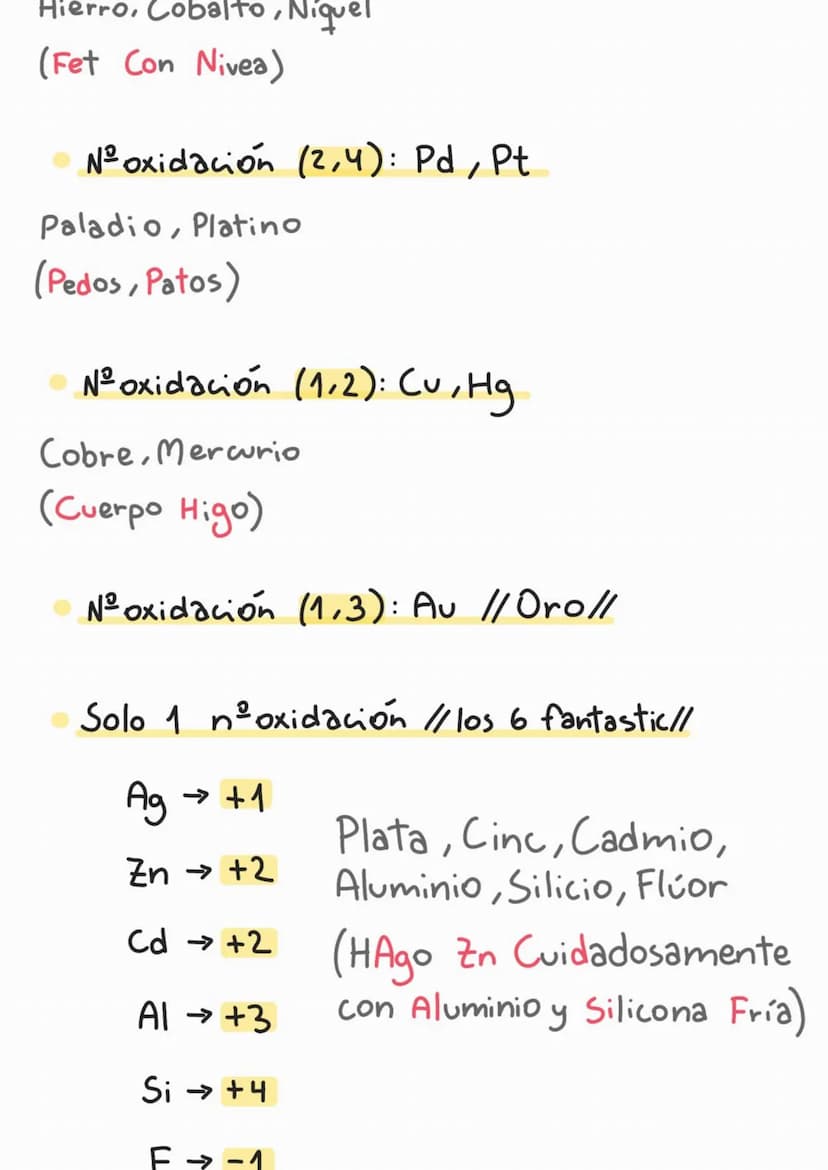 Hierro, Cobalto, Níquel
(Fet Con Nivea)
Nº oxidación (2,4): Pd, Pt
Paladio, Platino
(Pedos, Patos)
Nº oxidación (1,2): Cu, Hg
Cobre, Mercurio
(Cuerpo Higo)
Nº oxidación (1,3): Au //Oro//
Solo 1 nº oxidación //los 6 fantastic//
Ag → +1
Zn → +2
Cd → +2
Al → +3
Si → +4
F → -1
Plata, Cinc, Cadmio,
Aluminio, Silicio, Flúor
(HAgo Zn Cuidadosamente
con Aluminio y Silicona Fría)